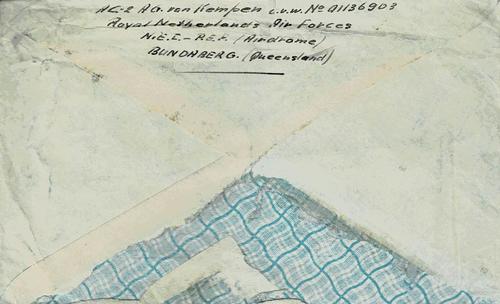 AC-2 A.G. van Kempen c.v.w. No 01136903
Royal Netherlands Air Forces
N.E.I.-R.E.F. (Airdrome)
BUNDABERG. (Queensland)